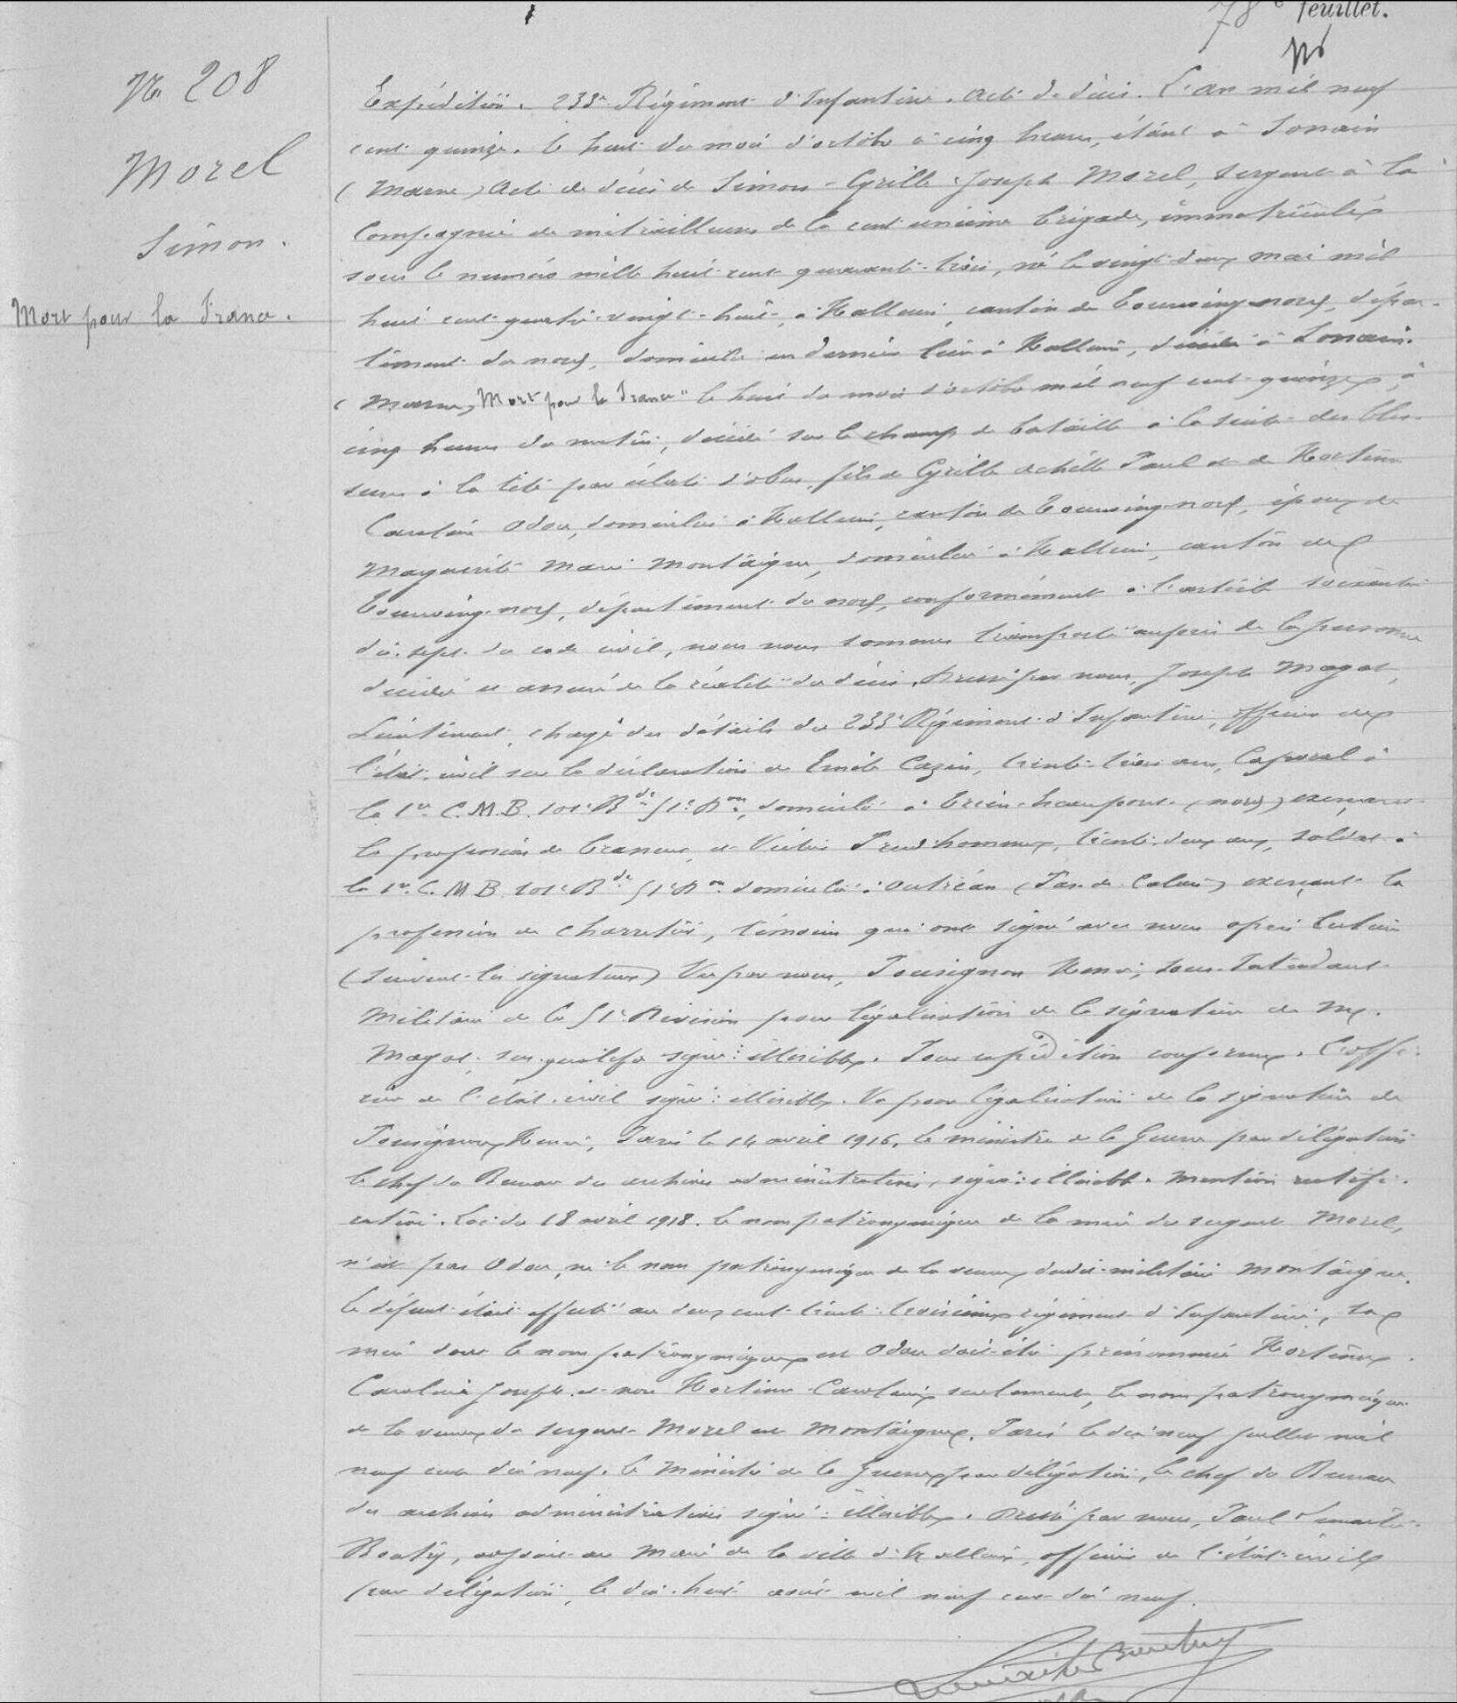 78e feuillet.
No 208
Morel
Simon.
Mort pour la France.
Expédition. 233e Régiment d'Infanterie. Acte de décès. L'an mil neuf
cent quinze, le huit du mois d'octobre à cinq heures, étant à Somain
(Marne) Acte de décès de Simon Cyrille Joseph Morel, sergent à la
Compagnie de mitrailleurs de la cent unième brigade, immatriculé
sous le numéro mille huit cent quarante-trois, né le vingt deux mai mil
huit cent quatre-vingt-huit, à Halluin, canton de Tourcoing-nord, dépar-
tement du nord, domicilié en dernier lieu à Halluin, décédé à Somain
(Marne) "Mort pour la France" le huit du mois d'octobre mil neuf cent quinze, à
cinq heures du matin, décédé sur le champ de bataille à la suite des bles-
sures à la tête par éclats d'obus, fils de Cyrille Achille Paul et de Hortense
Caroline Odou, domiciliés à Halluin, canton de Tourcoing-nord, époux de
Marguerite Marie Montaigne, domiciliée à Halluin, canton de
Tourcoing-nord, département du nord, conformément à l'article soixante
dix-sept du code civil, nous nous sommes transporté auprès de la personne
décédée et assuré de la réalité du décès. Dressé par nous, Joseph Magat,
Lieutenant, chargé des détails du 233e Régiment d'Infanterie, officier de
l'état-civil sur la déclaration de Emile Cazin, trente-trois ans, Caporal à
la 1re C.M.B. 101e Bde 51e Don, domicilié à (nord) exerçant
la profession de et Victor Prud'homme, trente-deux ans, soldat à
la 1re C.M.B. 101e Bde 51e Don domicilié à Outréau (Pas-de-Calais) exerçant la
profession de charretier, témoins qui ont signé avec nous après lecture
(suivent les signatures) Vu par nous, Henri, sous-Intendant
Militaire de la 51e Division pour légalisation de la signature de Mr.
Magat, sus-qualifié signé : illisible. Pour expédition conforme. L'offi-
cier de l'état-civil signé : illisible. Vu pour légalisation de la signature de
Henri, Paris le 14 avril 1916, le ministre de la Guerre par délégation
le chef du Bureau des archives administratives, signé : illisible. Mention rectifi-
cative. Loi du 18 avril 1918. Le nom patronymique de la mère du sergent Morel,
n'est pas Odou, ni le nom patronymique de la veuve dudit militaire Montaigne.
Le défunt était affecté au deux cent trente-troisième régiment d'Infanterie, sa
mère dont le nom patronymique est Odou doit être prénommée Hortense
Caroline Joseph, et non Hortense Caroline seulement, le nom patronymique
de la veuve du sergent Morel est Montaigne. Paris le dix neuf juillet mil
neuf cent dix neuf. Le Ministre de la Guerre par délégation, le chef du Bureau
des archives administratives signé : illisible. Dressé par nous, Paul
adjoint au Maire de la ville d'Halluin, officier de l'état-civil
par délégation, le dix-huit août mil neuf cent dix neuf.